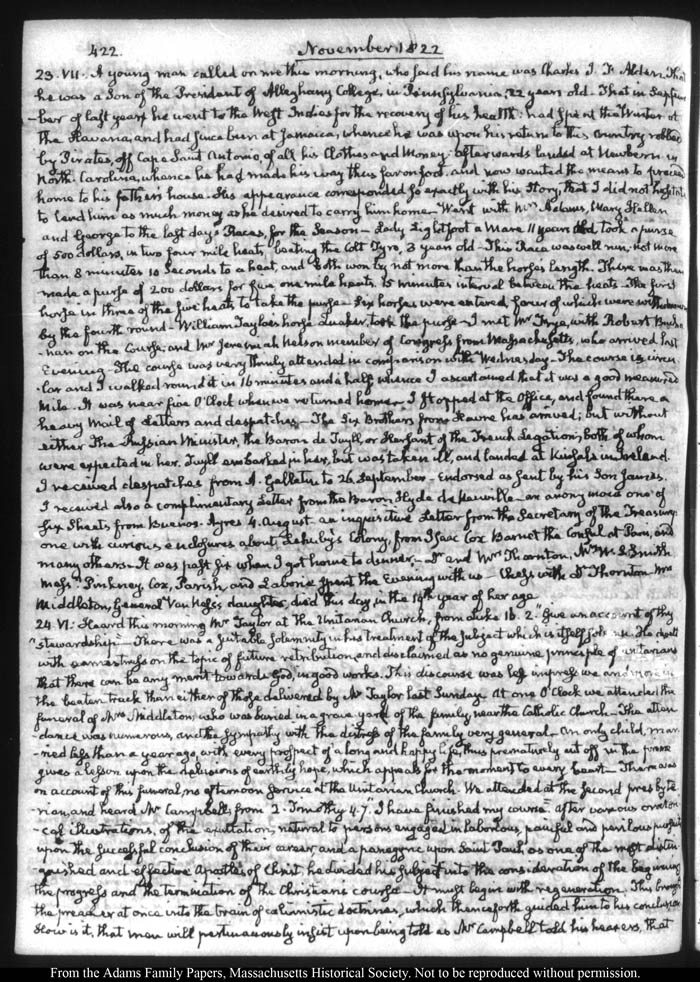 422.
November 1822
23. VII. A young man called on me this morning, who said his name was Charles J. F. Alden, That
he was a Son of the President of Alleghany College, in Pennsylvania, 22 years old. That in Septem
-ber of last year he went to the West Indies for the recovery of his health: had spent the Winter at
the Havanna, and had since been at Jamaica, whence he was upon his return to this Country robbed
by Pirates, off Cape Saint Antonio, of all his Clothes and Money. afterwards landed at Newbern in
North Carolina, whence he had made his way thus far on foot, and now wanted the means to proceed
home to his father's house. His appearance corresponded so exactly with his Story, that I did not hesitate
to lend him as much money as he desired to carry him home. Went with Mrs Adams, Mary Hellen
and George to the last day's Races, for the Season. Lady Lightfoot a Mare 11 years old took a purse
of 500 dollars, in two four mile heats, beating the Colt Tyro, 3 year old. This Race was well run, not more
than 8 minutes 10 Seconds to a heat, and both won by not more than the horse's length. There was then
made a purse of 200 dollars for five one mile heats. 15 minutes interval between the heats. The first
horse in three of the five heats to take the purse. Six horses were entered, four of which were withdrawn
by the fourth round. William Taylor's horse Quaker, took the purse. I met Mr Frye, with Robert Bucha
-nan on the Course: and Mr Jeremiah Nelson member of Congress from Massachusetts, who arrived last
Evening. The course was very thinly attended in comparison with Wednesday. The course is circu
-lar and I walked round it in 16 minutes and a half whence I ascertained that it was a good measured
Mile. It was near five O'Clock when we returned home. I stopped at the Office, and found there a
heavy Mail of Letters and despatches. The Six Brothers from Havre has arrived; but without
either The Russian Minister, the Baron de Tuyll, or Hersant of the French Legation; both of whom
were expected in her. Tuyll embarked in her, but was taken ill, and landed at Kinsale in Ireland.
I received despatches from A. Gallatin to 26. September. Endorsed as sent by his Son James.
I received also a complimentary Letter from the Baron Hyde de Neuville. an anonymous one of
Six Sheets from Buenos-Ayres 4. August. an inquisitive Letter from the Secretary of the Treasury.
one with curious enclosures about Colony, from Isaac Cox Barnet the Consul at Paris, and
many others. It was past six when I got home to dinner. Dr and Mrs Thornton, Mrs W. S. Smith
Messrs Pinkney, Cox, Parish, and Laborie spent the Evening with us. Chess with Dr Thornton. Mrs
Middleton, General Van Ness's daughter, died this day, in the 19th year of her age.
24. VI. Heard this morning Mr Taylor at the Unitarian Church, from Luke 16. 2. "Give an account of thy
"stewardship." There was a suitable solemnity in his treatment of the subject which is itself so He dwelt
with earnestness on the topic of future retribution, and disclaimed as no genuine principle of unitarians
that there can be any merit towards God, in good works. This discourse was less impressive and more in
the beaten track than either of those delivered by Mr Taylor last Sunday. At one O'Clock we attended the
funeral of Mrs Middleton, who was buried in a grave yard of the family, near the Catholic Church. The atten
-dance was numerous, and the sympathy with the distress of the family very general. An only child, mar
-ried less than a year ago, with every prospect of a long and happy life, thus prematurely cut off in the prime
gives a lesson upon the delusions of earthly hope, which appeals for the moment to every heart. There was
on account of this funeral, no afternoon service at the Unitarian Church. We attended at the Second presbyte
rian, and heard Mr Campbell, from 2. Timothy 4.7. "I have finished my course." After various oratori
-cal illustrations, of the exultation, natural to persons engaged in laborious, painful and perilous pursuits
upon the successful conclusion of their career, and a panegyric upon Saint Paul, as one of the most distin
guished and effective Apostles of Christ, he divided his subject into the consideration of the beginning
the progress and the termination of the Christian's course. It must begin with regeneration. This brought
the preacher at once into the train of calvinistic doctrines, which thenceforth guided him to his conclusion
How is it, that men will pertinaciously insist upon being told as Mr Campbell told his hearers, that
From the Adams Family Papers, Massachusetts Historical Society. Not to be reproduced without permission.